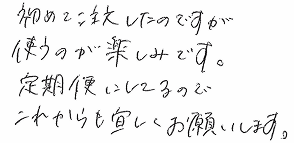 初めてご注文したのですが
使うのが楽しみです。
定期便にしてるので
これからも宜しくお願いします。